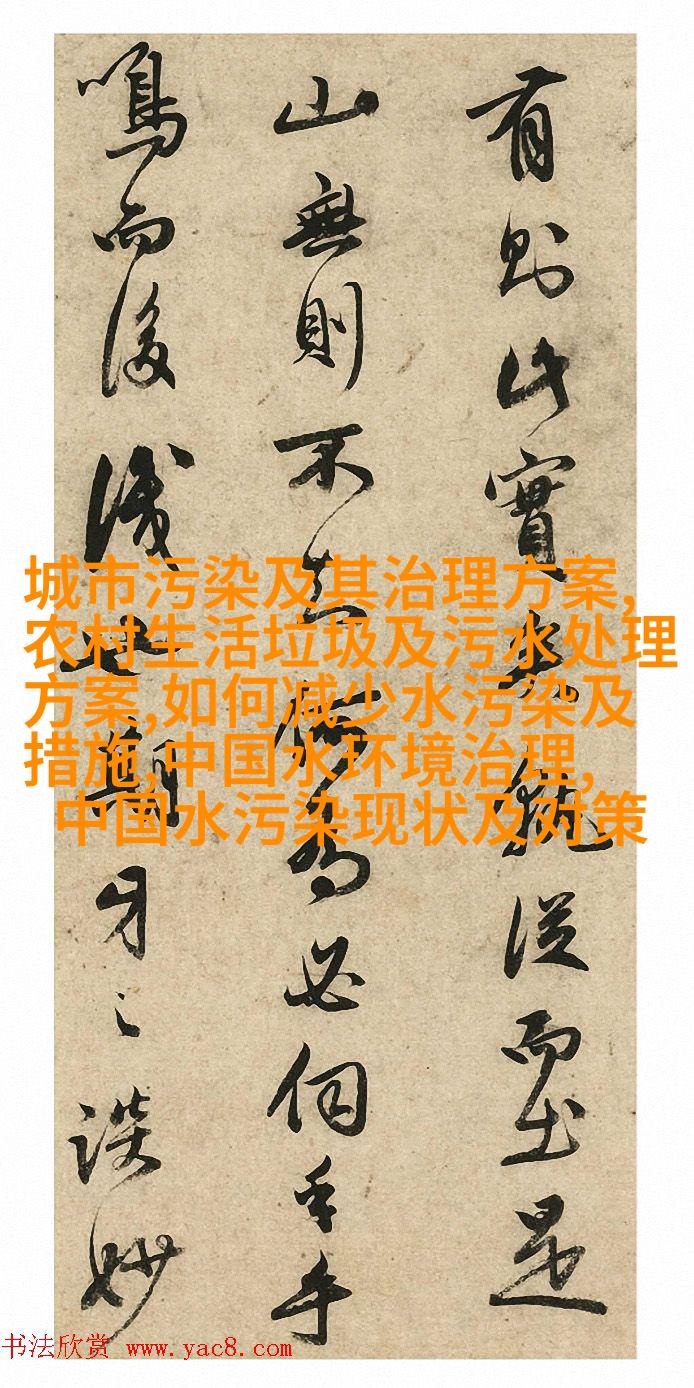 有則此實從而出是
山無則不為必何手
鳴而後識也期牙之談妙
城市污染及其治理方案,
农村生活垃圾及污水处理
方案,如何减少水污染及
措施,中国水环境治理,
中国水污染现状及对策
书法欣赏 www.yac8.com